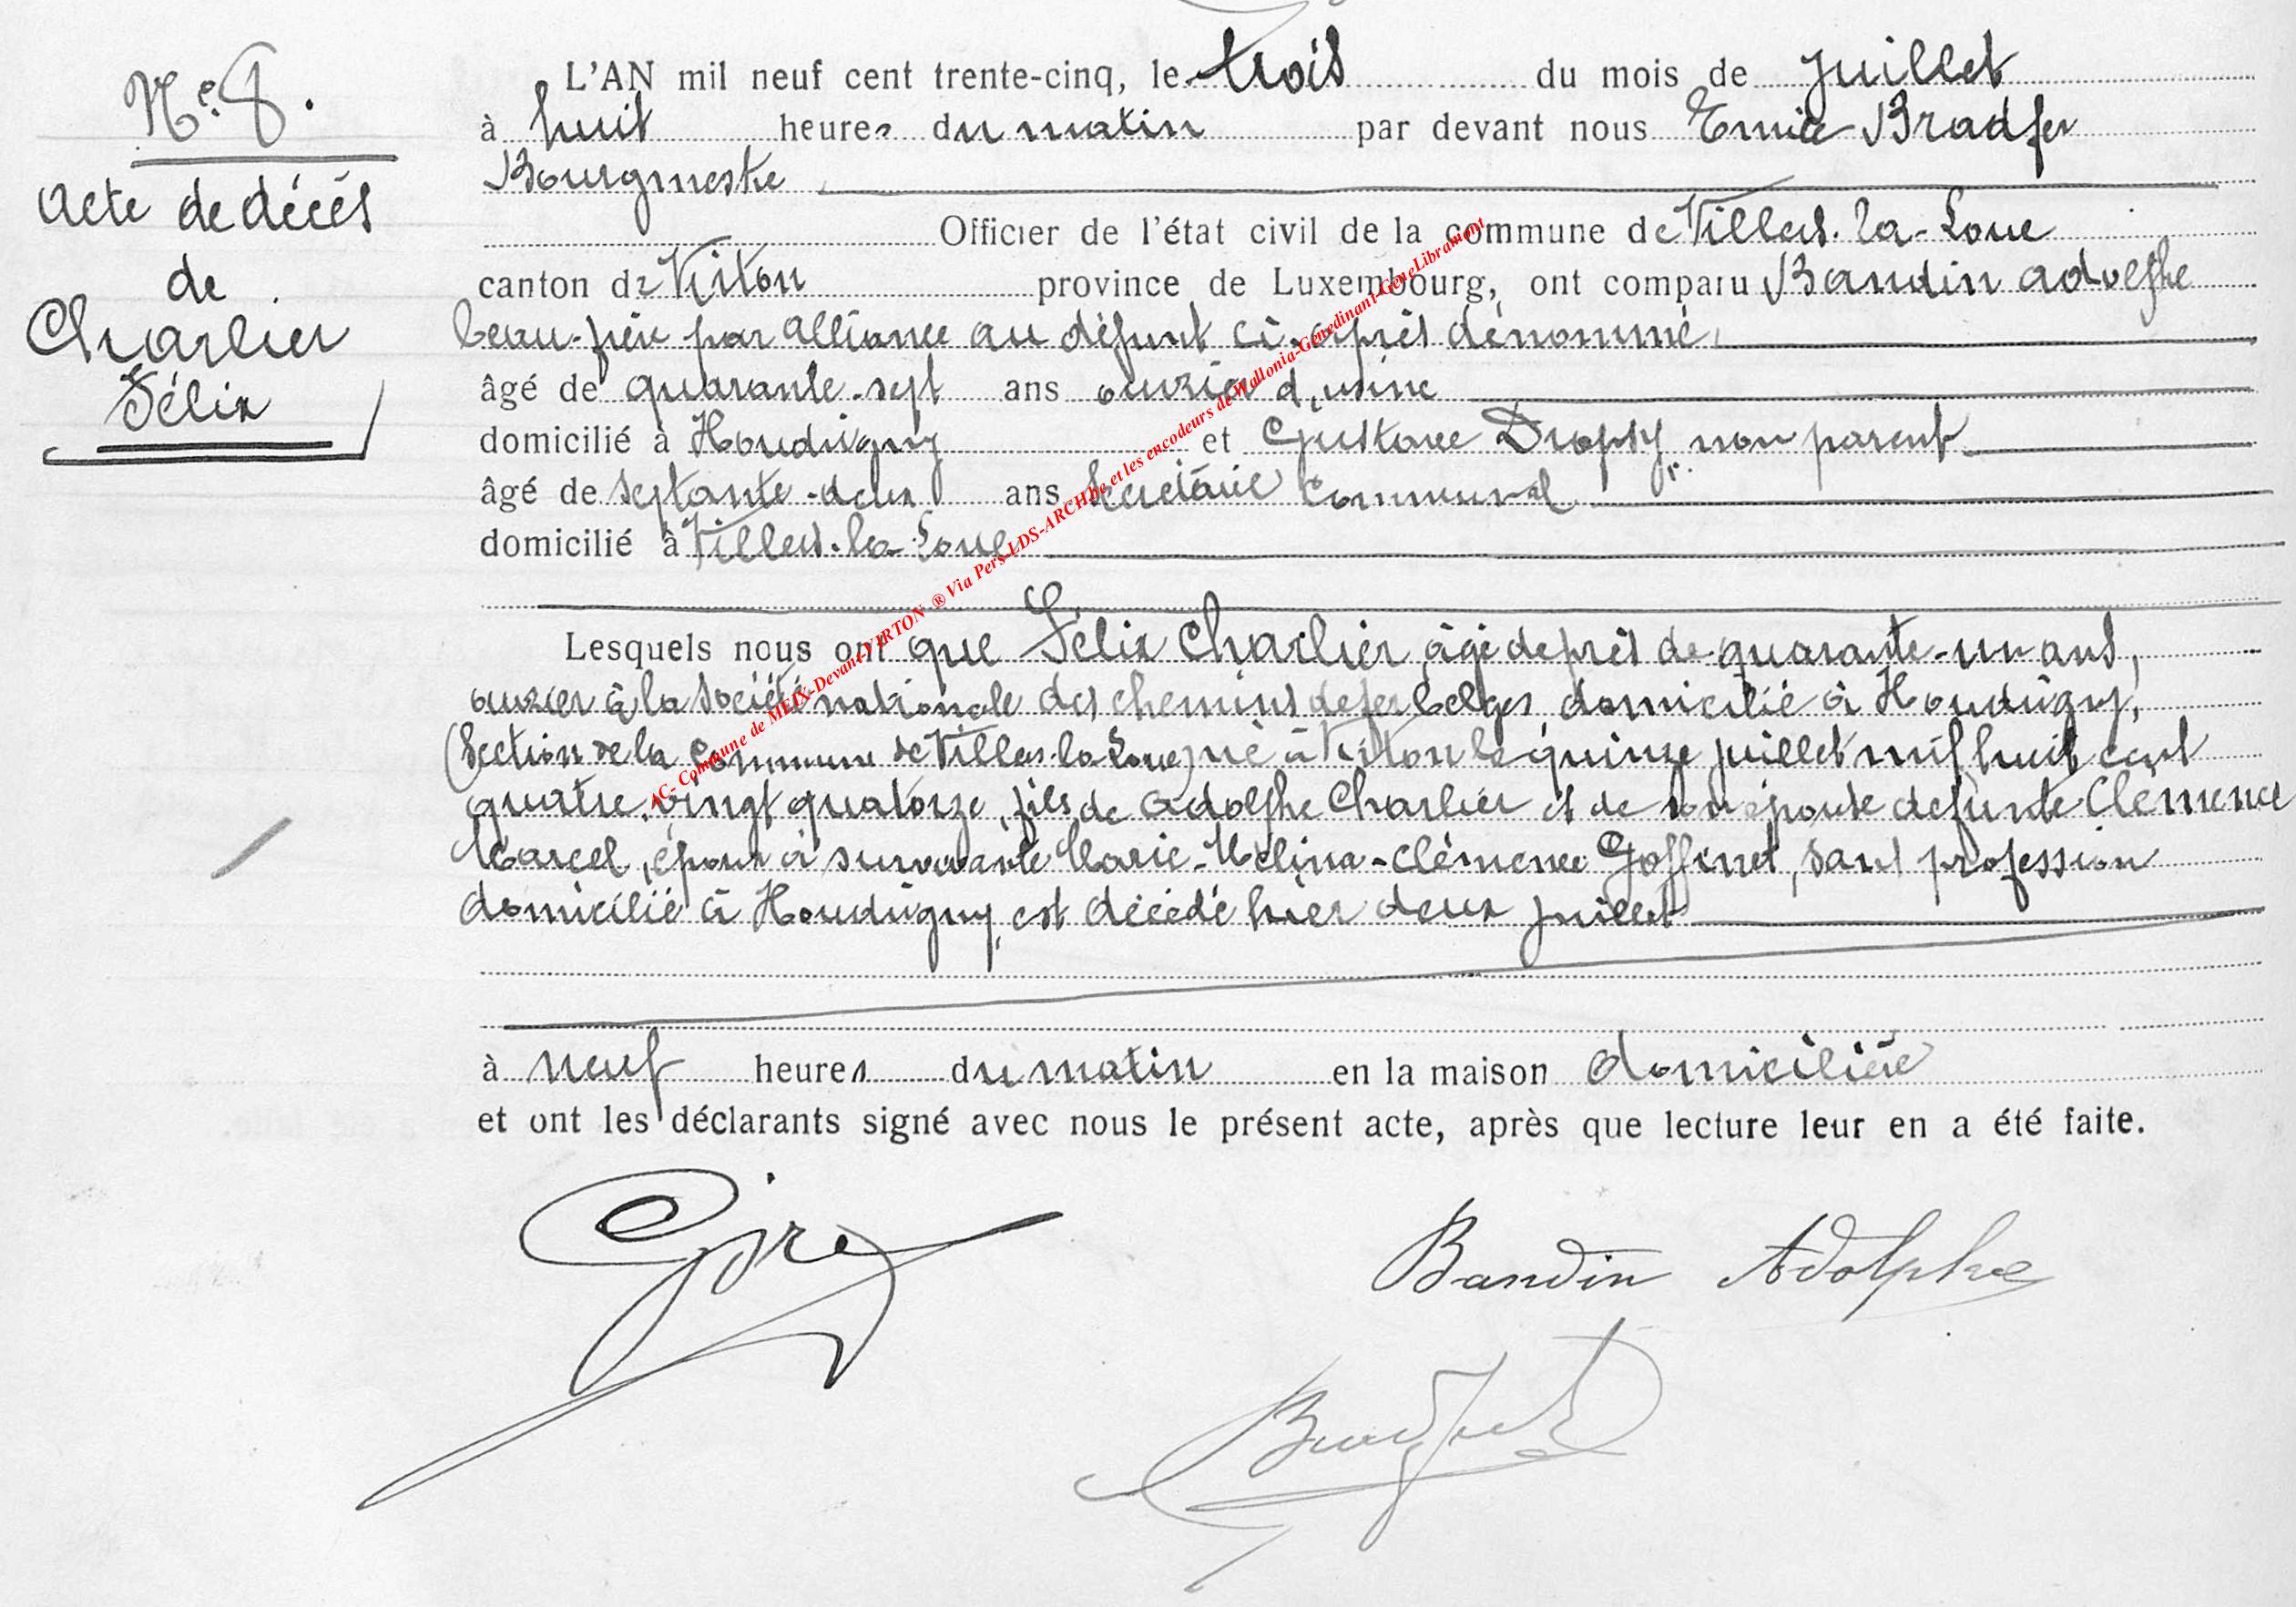 N° 8.
Acte de décès
de
Charlier
Félix
L'AN mil neuf cent trente-cinq, le trois du mois de juillet
à huit heures du matin par devant nous Emile Bradfer
Bourgmestre
Officier de l'état civil de la commune de Villers-la-Loue
canton de Virton province de Luxembourg, ont comparu Baudin Adolphe
beau-frère par alliance au défunt ci-après dénommé,
âgé de quarante-sept ans ouvrier d'usine
domicilié à Houdrigny et Gustave Dropsy, non parent
âgé de septante-deux ans secrétaire communal
domicilié à Villers-la-Loue
Lesquels nous ont que Félix Charlier, âgé de près de quarante-un ans,
ouvrier à la société nationale des chemins de fer belges, domicilié à Houdrigny,
(section de la commune de Villers-la-Loue) né à Virton le quinze juillet mil huit cent
quatre-vingt quatorze, fils de Adolphe Charlier et de son épouse défunte Clémence
Marcel, époux à survivante Marie-Mélina-Clémence Goffinet, sans profession
domicilié à Houdrigny, est décédé hier deux juillet
à neuf heures du matin en la maison domiciliére
et ont les déclarants signé avec nous le présent acte, après que lecture leur en a été faite.
Baudin Adolphe
Bradfer
AC- Commune de MEIX-Devant-VIRTON ® Via Pers-LDS-ARCH.be et les encodeurs de Wallonia-Genedinant-GeneLibramont